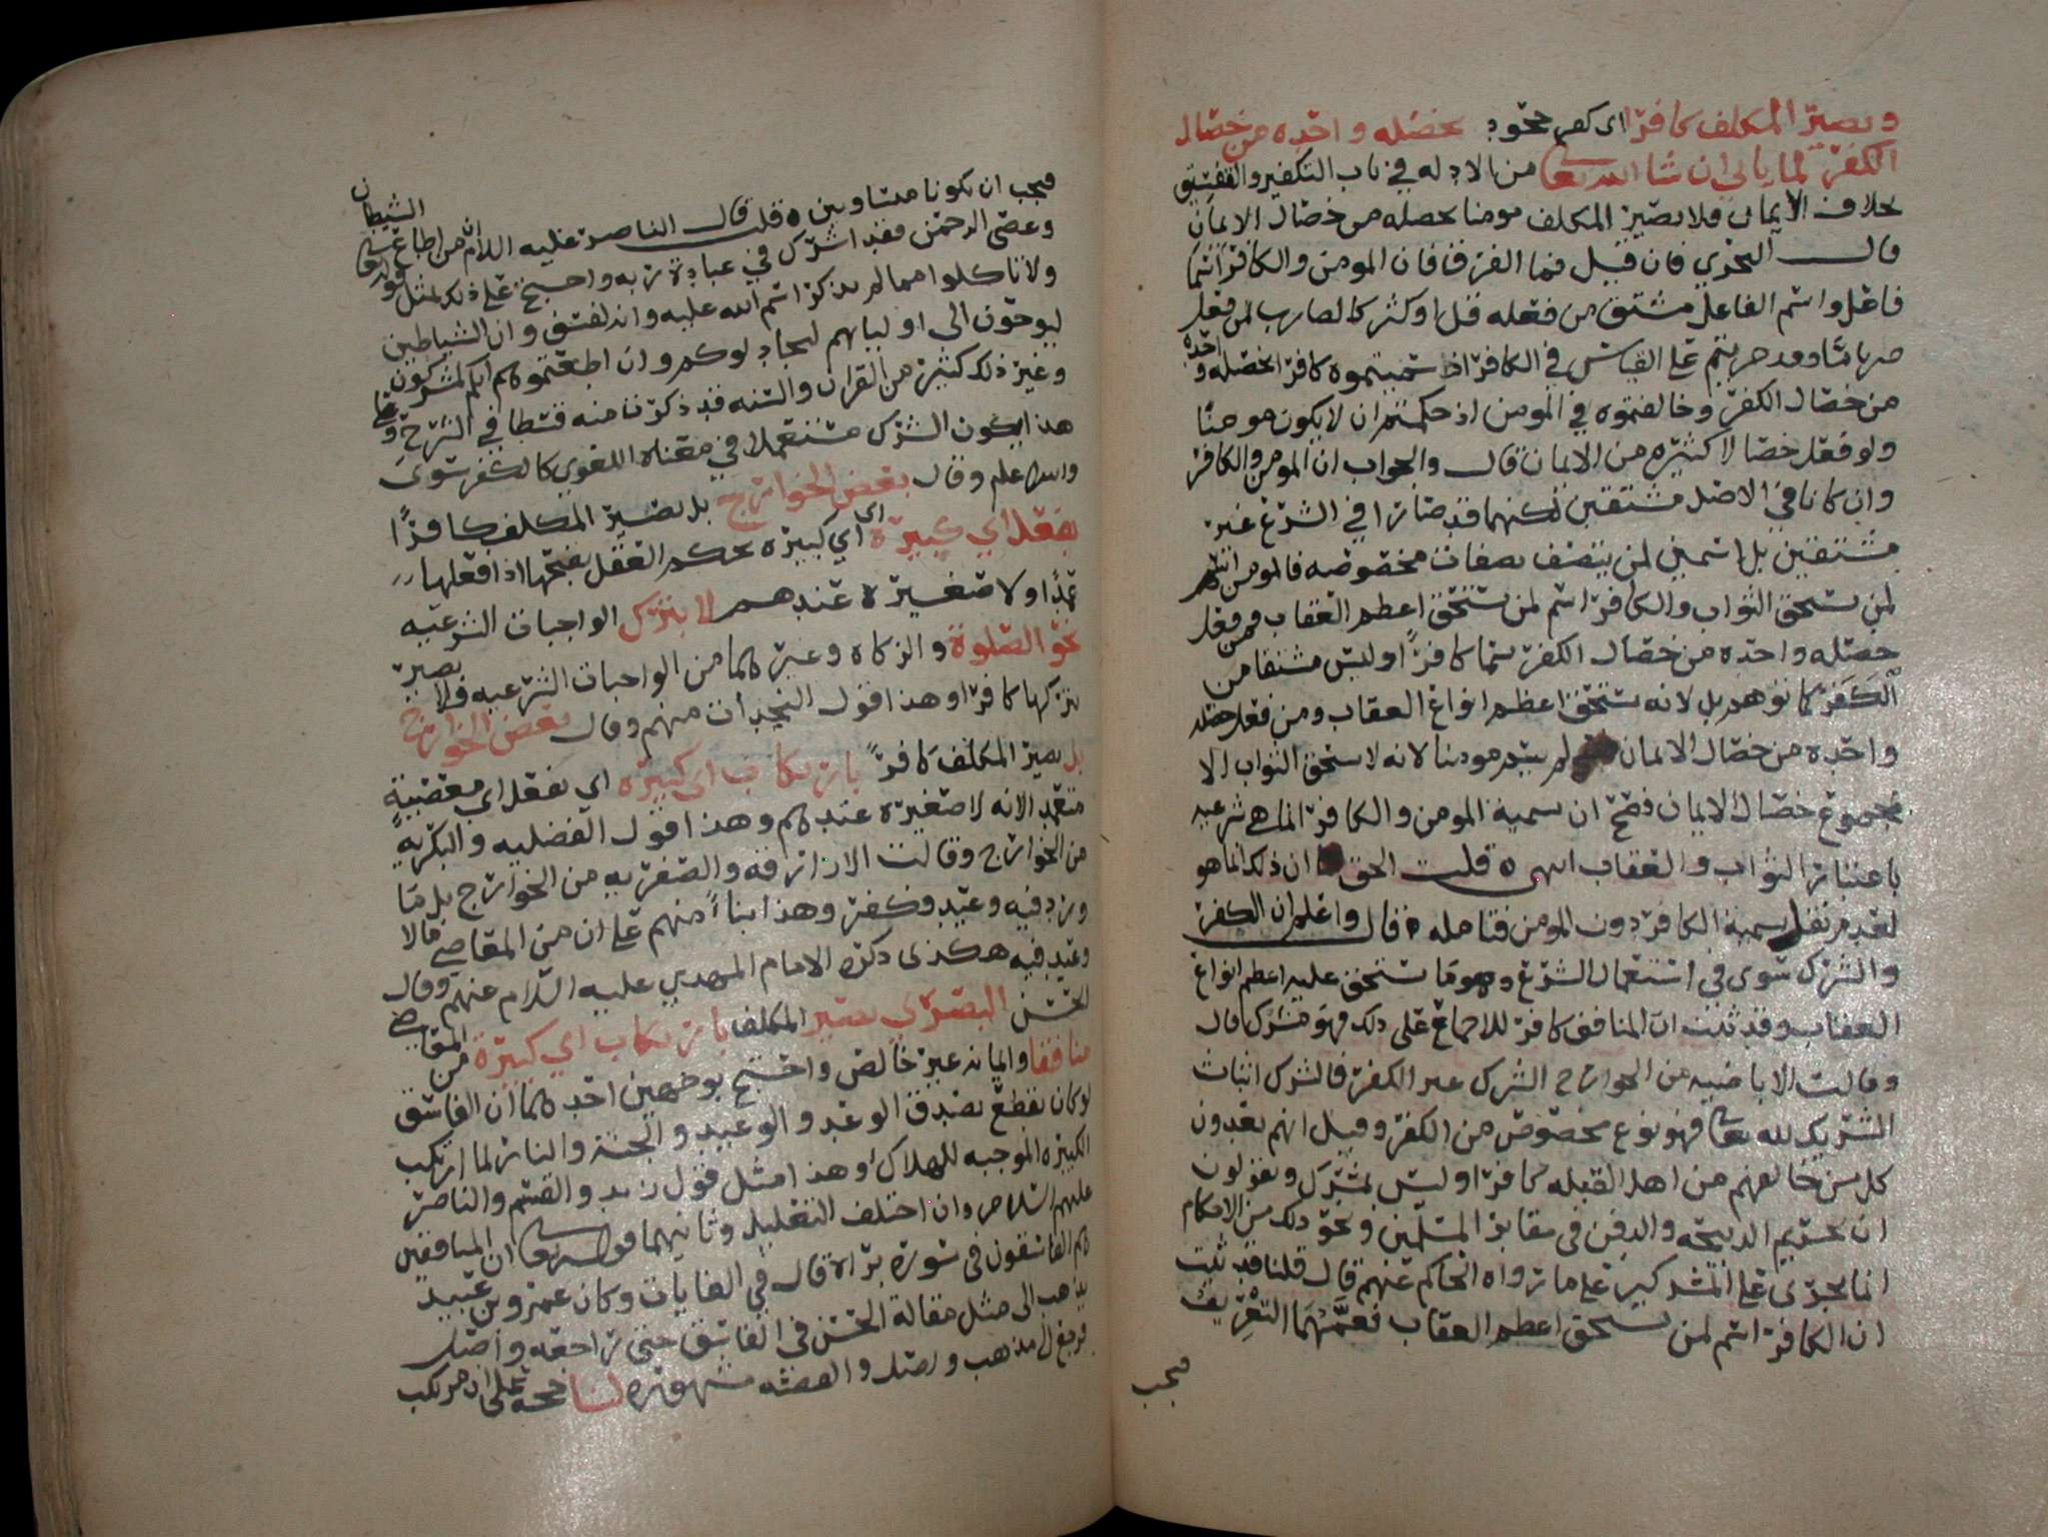 ويصير المكلف كافرا اي كفر جحود بخصله واحده من خصال
الكفر لما ياتي ان شا الله تعالى من الادله في باب التكفير والتفسيق
بخلاف الايمان فلا يصير المكلف مومنا بخصله من خصال الايمان
قال النجري فان قيل فما الفرق فان المومن والكافر اسما
فاعل واسم الفاعل مشتق من فعله قل او كثر كالضارب لمن فعل
ضربا ما وقد جريتم على القياس في الكافر اذ سميتموه كافرا بخصله واحده
من خصال الكفر وخالفتموه في المومن اذ حكمتم ان لا يكون مومنا
ولو فعل خصالا كثيره من الايمان قال والجواب ان المومن والكافر
وان كانا في الاصل مشتقين لكنهما قد صارا في الشرع غير
مشتقين بل اسمين لمن يتصف بصفات مخصوصه فالمومن اسم
لمن يستحق الثواب والكافر اسم لمن يستحق اعظم العقاب فمن فعل
خصله واحده من خصال الكفر سما كافرًا وليس مشتقا من
الكَفَر كما توهم بل لانه يستحق اعظم انواع العقاب ومن فعل خصله
واحده من خصال الايمان لم يسم مومنا لانه لا يستحق الثواب الا
بمجموع خصال الايمان فصح ان تسمية المومن والكافر انما هي شرعيه
باعتبار الثواب والعقاب انتهى ه قلت الحق ان ذلك انما هو
لعدم نقل تسمية الكافر دون المومن فتامله ه قال واعلم ان الكفر
والشرك سوى في استعمال الشرع وهو ما يستحق عليه اعظم انواع
العقاب وقد ثبت ان المنافق كافر للاجماع على ذلك فهو مشرك قال
وقالت الاباضيه من الخوارج الشرك غير الكفر فالشرك اثبات
الشريك لله تعالى فهو نوع مخصوص من الكفر وقيل انهم يعدون
كل من خالفهم من اهل القبله كافرا وليس بمشرك ويقولون
ان تحريم الذبيحه والدفن في مقابر المسلمين ونحو ذلك من الاحكام
انما يجرى على المشركين على ما رواه الحاكم عنهم قال قلنا قد ثبت
ان الكافر اسم لمن يستحق اعظم العقاب فعمَّهُمَا التعريف
فيجب
فيجب ان يكونا متساويين ه قلت قال الناصر عليه السلام ان من اطاع الشيطان
وعصى الرحمن فقد اشرك في عبادة ربه واحتج على ذلك بمثل قوله تعالى
ولا تاكلوا مما لم يذكر اسم الله عليه وانه لفسق وان الشياطين
ليوحون الى اوليايهم ليجادلوكم وان اطعتموهم انكم لمشركون
وغير ذلك كثير من القران والسنه قد ذكرنا منه قسطا في الشرح وعلى
هذا يكون الشرك مستعملا في معناه اللغوي كالكفر سوى
والله اعلم وقال بعض الخوارج بل يصير المكلف كافرًا
بفعل اي كبيرة اي اي كبيره يحكم العقل بقبحها اذا فعلها
عمدًا ولا صغيرة عندهم لا بترك الواجبات الشرعيه
نحو الصلوة والزكاه وغيرهما من الواجبات الشرعيه فلا يصير
بتركها كافرا وهذا قول النجدات منهم وقال بعض الخوارج
بل يصير المكلف كافرًا بارتكاب اي كبيره اي بفعل اي معصيةٍ
متعمد الانه لا صغيره عندهم وهذا قول الفضليه والبكريه
من الخوارج وقالت الازارقه والصفريه من الخوارج بل ما
ورد فيه وعيد فكفر وهذا بناءً منهم على ان من المعاصي مالا
وعيد فيه هكذى ذكره الامام المهدي عليه السلام عنهم وقال
الحسن البصري يصير المكلف بارتكاب اي كبيرة من المعاصي
منافقا وايمانه غير خالص واحتج بوجهين احدهما ان الفاسق
لو كان يقطع بصدق الوعد والوعيد والجنة والنار لما ارتكب
الكبيره الموجبه للهلاك وهذا مثل قول زيد والقسم والناصر
عليهم السلام وان اختلف التعليل وثانيهما قوله تعالى ان المنافقين
هم الفاسقون في سورة براة قال في الغايات وكان عمرو بن عبيد
يذهب الى مثل مقالة الحسن في الفاسق حتى راجعه واصل
فرجع الى مذهب واصل والقصه مشهوره لنا حجه على ان مرتكب